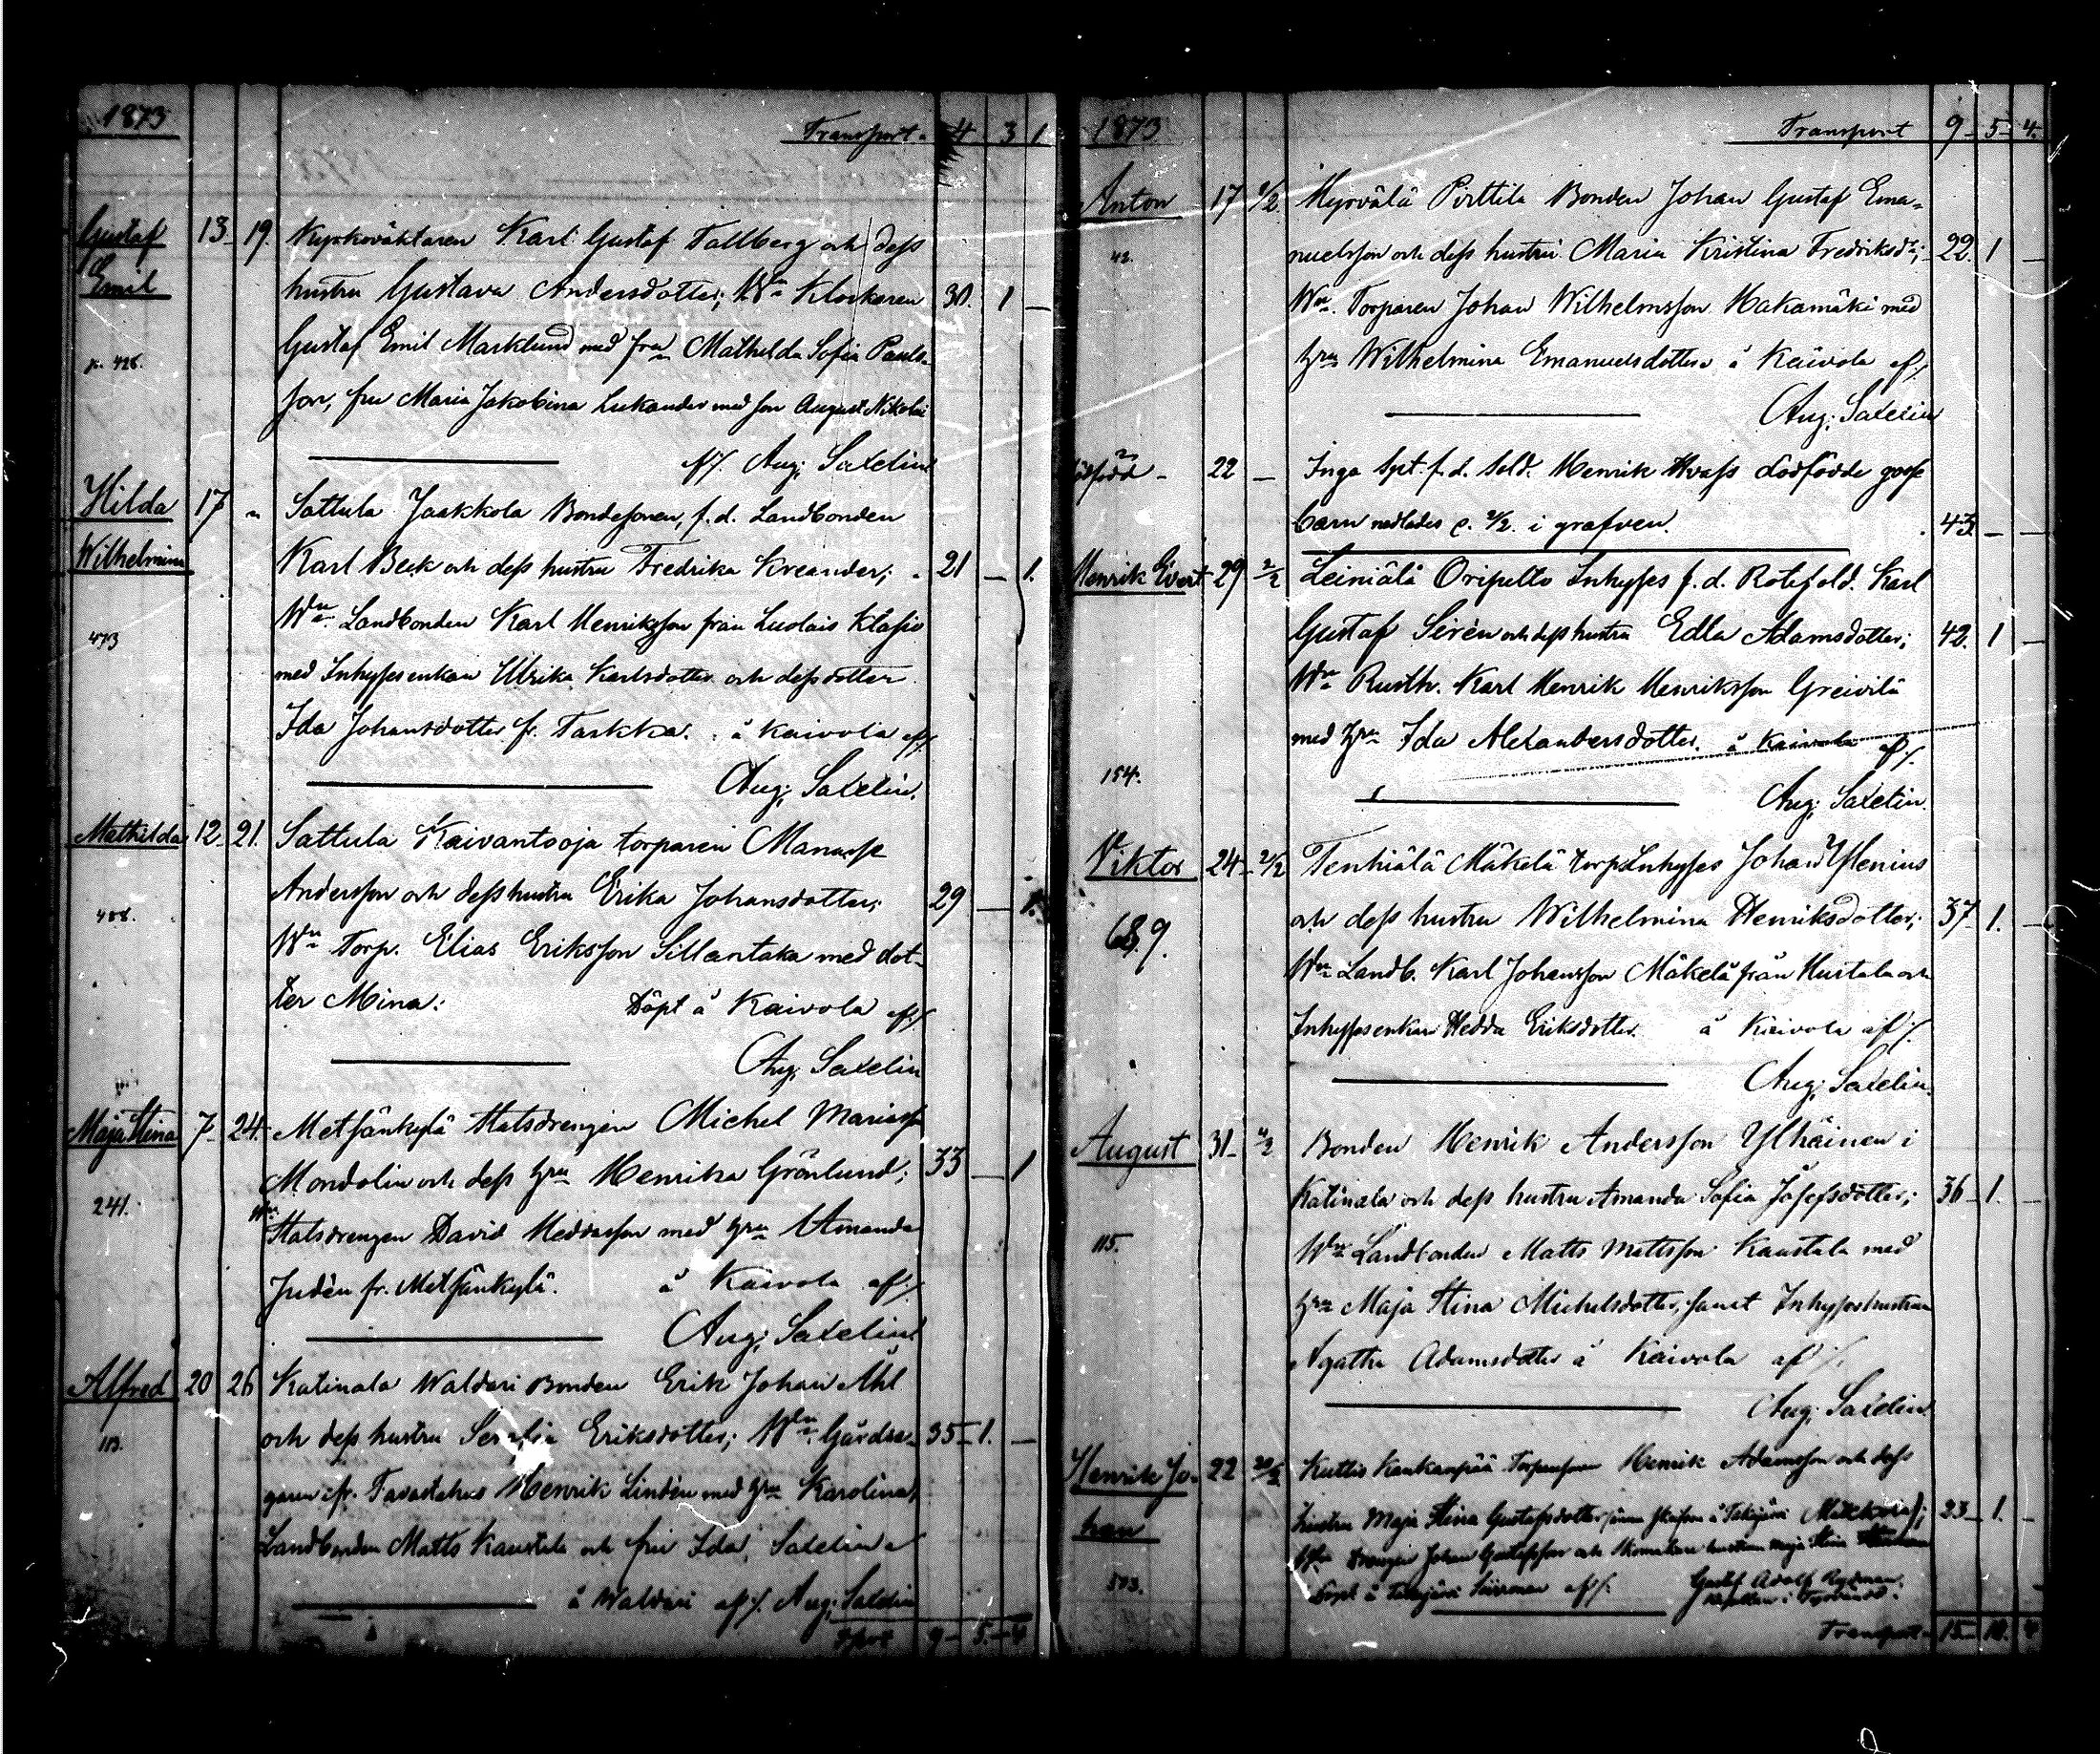 1873
Transport. 4 3 1
Gustaf 13 19. Kyrkovaktaren Karl Gustaf Tallberg och dess
Emil hustru Gustava Andersdotter; Wn Klockaren 30. 1 —
p. 428. Gustaf Emil Marklund med fru Mathilda Sofia Pauls-
son, fru Maria Jakobina Lukander med son August Nikolai
af/. Aug; Saxelin
Hilda 17 " Sattula Jaakkola Bondesonen, f.d. Landbonden
Wilhelmina Karl Beck och dess hustru Fredrika Kreander; 21 — 1.
473 Wne Landbonden Karl Henriksson från Luolais Klasio
med Inhysesenkan Ulrika Karlsdotter och dess dotter
Ida Johansdotter fr. Tarkka. å Kaivola af/.
Aug; Saxelin.
Mathilda 12 21. Sattula Kaivantooja torparen Manasse
488. Andersson och dess hustru Erika Johansdotter; 29 — 1.
Wne Torp. Elias Eriksson Sillantaka med dot-
ter Mina. Döpt å Kaivola af/.
Aug; Saxelin
Maja Stina 7 24. Metsänkylä Statsdrengen Michel Mariasson
241. Mondolin och dess hru Henrika Grönlund; 33 — 1
Wne Statsdrengen David Heddasson med hru Amanda
Judén fr. Metsänkylä. å Kaivola af/.
Aug; Saxelin
Alfred 20 26 Katinala Waldari Bonden Erik Johan Ahl
113. och dess hustru Serafia Eriksdotter; Wne Gårdsä- 35 1. —
garen fr. Tavastehus Henrik Lindén med hru Karolina,
Landbonden Matts Kaustala och fru Ida Saxelin
å Waldari af/. Aug; Saxelin
Tpot 9 5. 4
1873
Transport 9 5 4.
Anton 17 1/2. Hyrvälä Pirttilä Bonden Johan Gustaf Ema-
42. nuelsson och dess hustru Maria Kristina Fredriksdr; 22. 1 —
Wne. Torparen Johan Wilhelmsson Hakamäki med
hru Wilhelmina Emanuelsdotter å Kaivola af/.
Aug; Saxelin
dödfödd 22 — Inga Spt. f.d. Sold. Henrik Hvass dödfödde gosse
barn nedlades d. 2/2. i grafven. 43. — —
Henrik Evert 29 2/2 Leiniälä Oripelto Inhyses f.d. Rotesold. Karl
Gustaf Sirén och dess hustru Edla Adamsdotter; 42. 1 —
Wne Rusth. Karl Henrik Henriksson Greivilä
med hru Ida Alexandersdotter. å Kaivola af/.
154. Aug; Saxelin.
Viktor 24 2/2 Tenhiälä Mäkelä torp. Inhyses Johan Ylenius
689. och dess hustru Wilhelmina Henriksdotter; 37 1. —
Wne Landb. Karl Johansson Mäkelä från Hustala och
Inhysesenkan Hedda Eriksdotter. å Kaivola af/.
Aug; Saxelin.
August 31 4/2 Bonden Henrik Andersson Ylhäinen i
Katinala och dess hustru Amanda Sofia Josefsdotter; 36 1. —
115. Wne Landbonden Matts Mattsson Kaustala med
hru Maja Stina Michelsdotter, samt Inhyseshustrun
Agatha Adamsdotter å Kaivola af/.
Aug; Saxelin
Henrik Jo- 22 Kuttis Kankanpää Torparson Henrik Adamsson och dess
han hustru Maja Stina Gustafsdotter 23 1. —
503. Wne Drengen Johan Gustafsson och Skomakare hustrun Maja Stina
Döpt å af/. Gustaf Adolf
kapellan i
Transport 15 10. 4